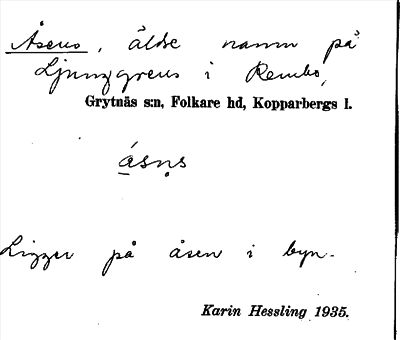 Åsens, äldre namn på
Ljunggrens i Rembo,
Grytnäs s:n, Folkare hd, Kopparbergs l.
åsṇs
Ligger på åsen i byn.
Karin Hessling 1935.